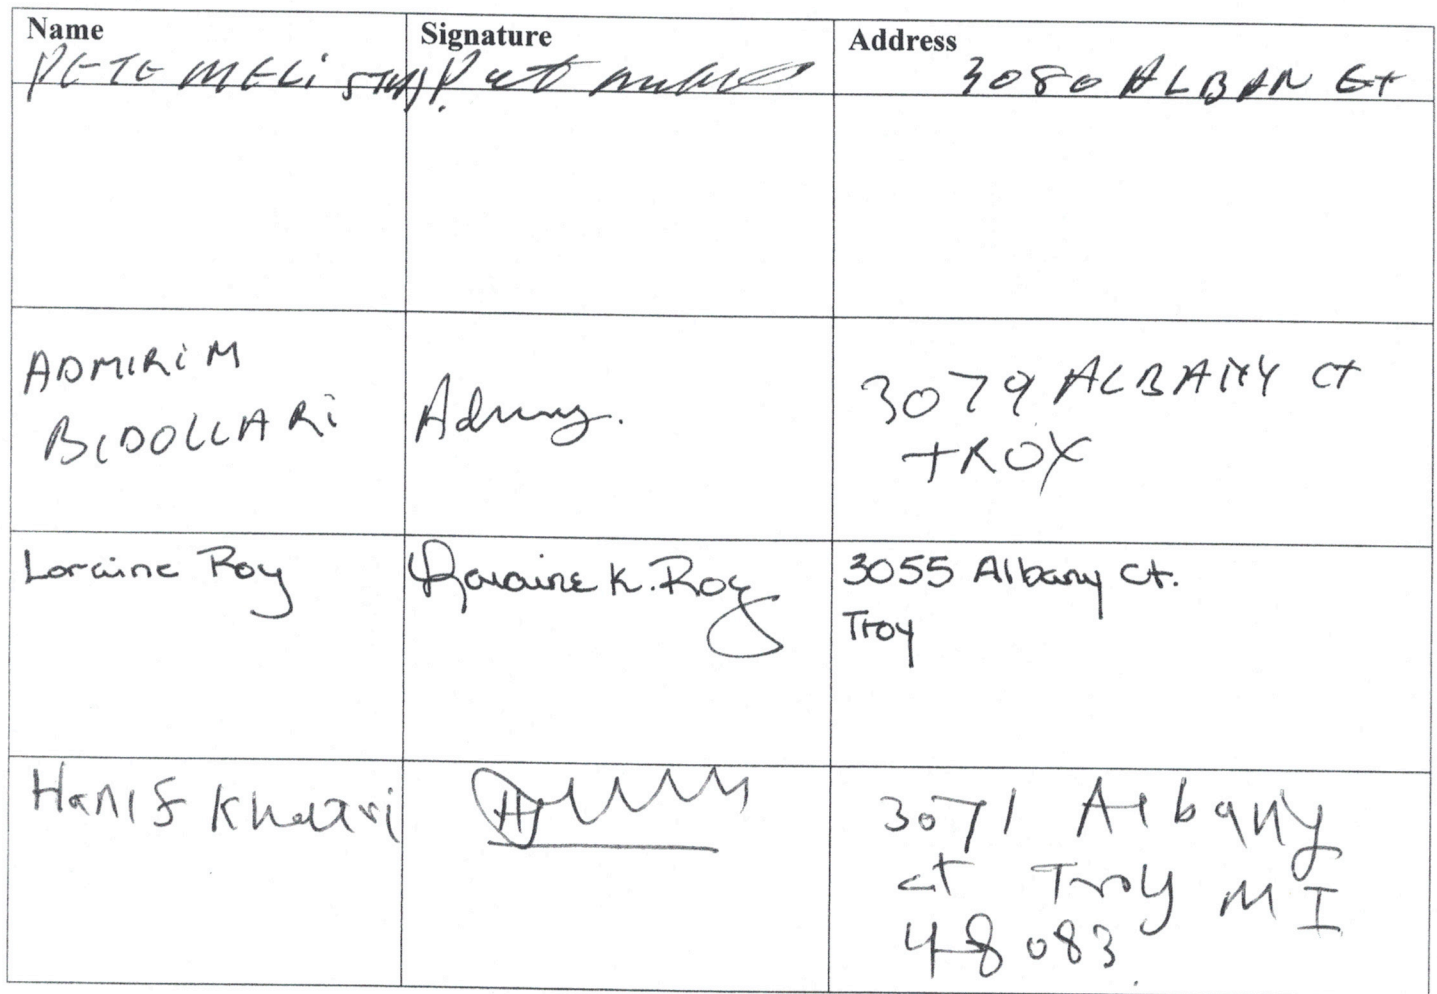 Name Signature Address
PETE 3080 ALBAN Ct
ADMIRIM
BIDOLLARI
3079 ALBANY Ct
TROY
Loraine Roy Loraine K. Roy 3055 Albany Ct.
Troy
Hanif 3071 Albany
ct Troy MI
48083